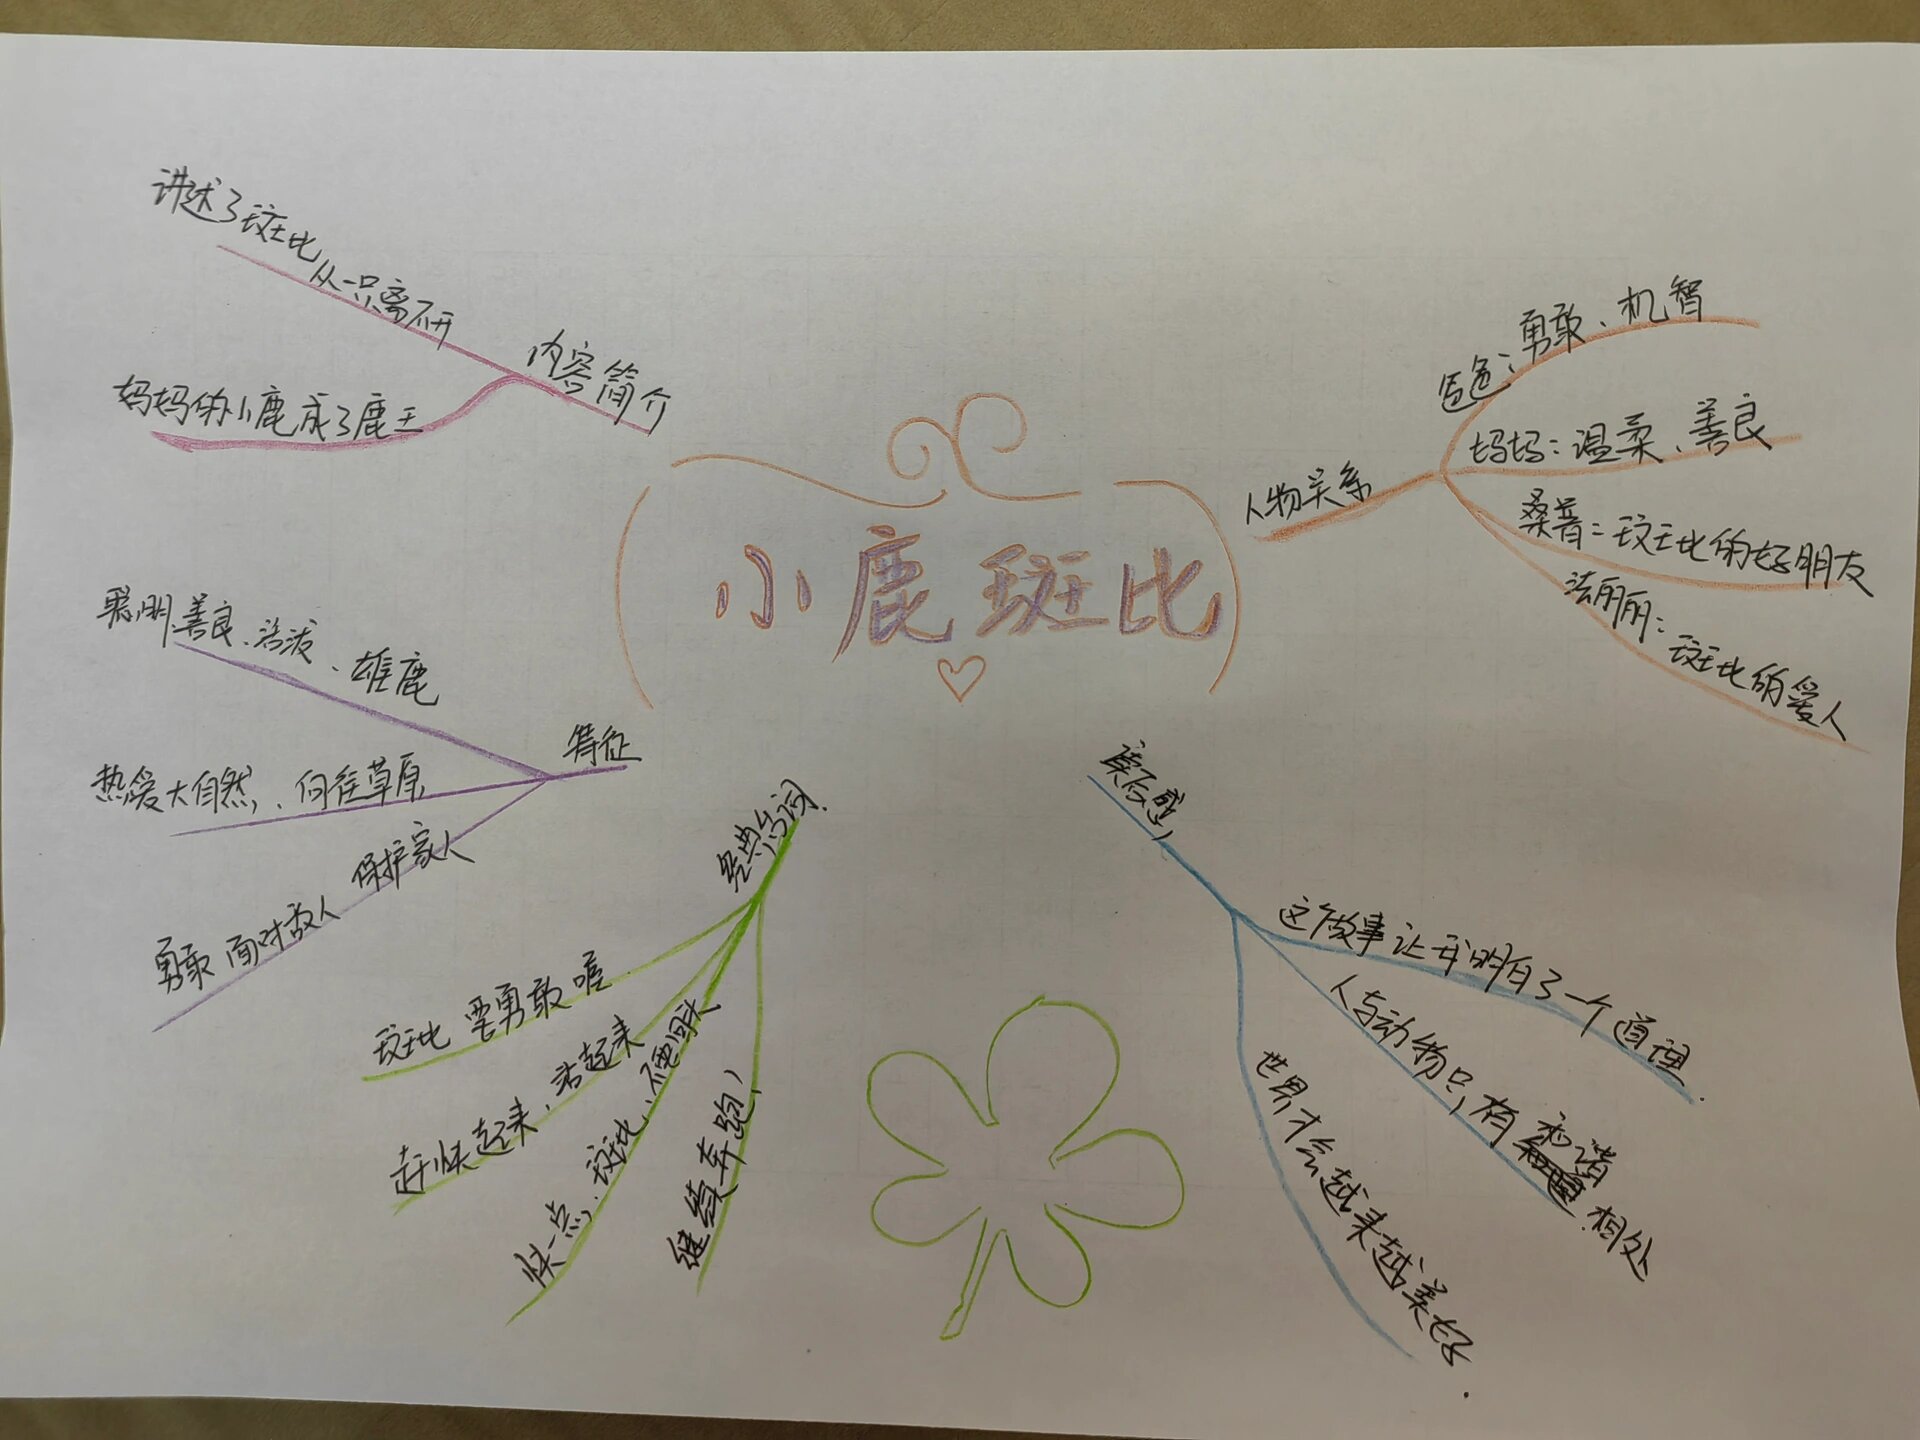 小鹿斑比
内容简介
讲述了斑比从一只离不开
妈妈的小鹿成了鹿王
人物关系
爸爸：勇敢、机智
妈妈：温柔、善良
桑普：斑比的好朋友
法丽丽：斑比的爱人
特征
聪明、善良、活泼、雄鹿
热爱大自然、向往草原
勇敢面对敌人 保护家人
经典台词
斑比 要勇敢喔
赶快起来，站起来
快一点，斑比，不要回头
继续奔跑
读后感
这个故事让我明白了一个道理
人与动物只有和谐相处
世界才会越来越美好